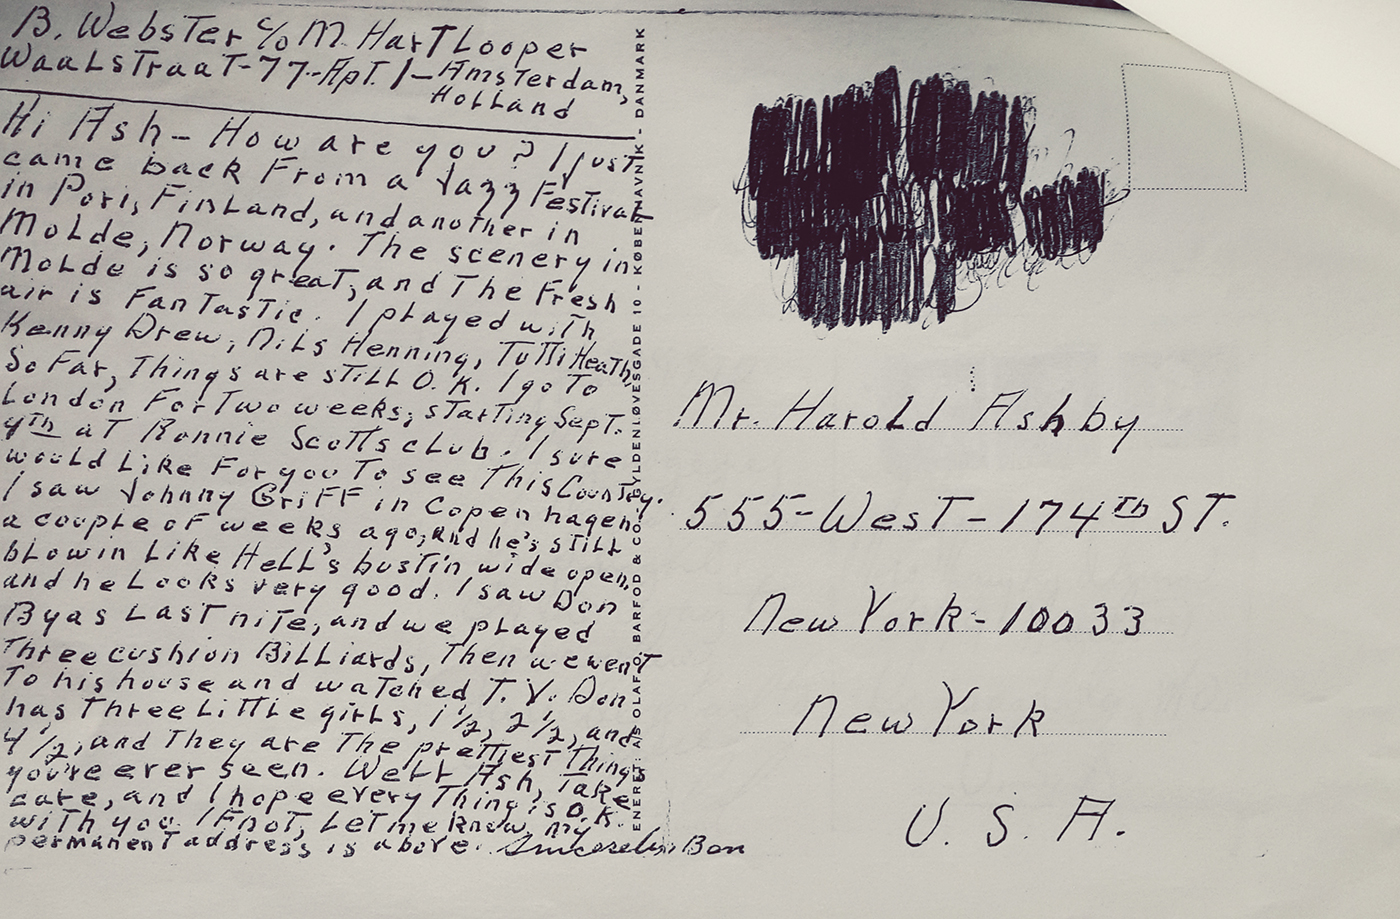 B. Webster c/o M. Hart Looper
Waalstraat-77-Apt. 1-Amsterdam,
Holland
Hi Ash- How are you? I just
came back From a Jazz Festival
in Pori, Finland, and another in
Molde, Norway. The scenery in
Molde is so great, and The Fresh
air is Fantastic. I played with
Kenny Drew, Nils Henning, Tutti Heath,
So Far, Things are still O.K. I go To
London For Two weeks, starting Sept.
9th at Ronnie Scotts club. I sure
would Like For you To see This Country.
I saw Johnny Griff in Copenhagen,
a couple of weeks ago, and he's still
blowin Like Hell's bustin wide open,
and he Looks very good. I saw Don
Byas Last nite, and we played
Three cushion Billiards, Then we went
To his house and watched T.V. Don
has Three Little girls, 1 1/2, 2 1/2, and
4 1/2, and They are The prettiest Things
you're ever seen. Well Ash, Take
care, and I hope every Thing is O.K.
with you. If not, Let me know. My
permanent address is above. Sincerely, Ben
ENERET: A/S OLAF O. BARFOD & CO. GYLDENLØVESGADE 10 - KØBENHAVN K - DANMARK
Mr. Harold Ashby
555-West-174th ST.
New York-10033
New York
U.S.A.